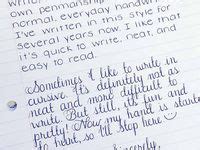 own penmanship
normal, everyday handwri
I've written in this style for
several years now. I like that
it's quick to write, neat, and
easy to read.
Sometimes I like to write in
cursive. It's definitely not as
neat and more difficult to
write. But still, it's fun and
pretty! Now my hand is starti
to hurt, so I'll stop here
Sincerely,